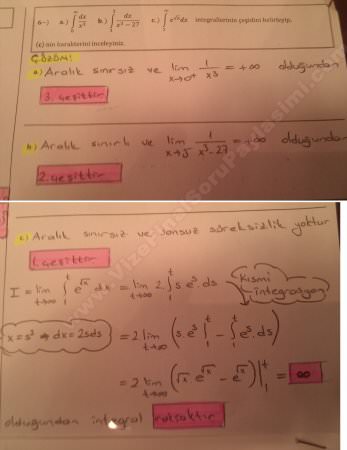 6-) a.) ∫₀^∞ dx/x³ b.) ∫ dx/(x³-27) c.) ∫₁^∞ e^√x dx integrallerinin çeşidini belirleyip,
(c) nin karakterini inceleyiniz.
ÇÖZÜM:
a) Aralık sınırsız ve lim x→0⁺ 1/x³ = +∞ olduğundan
3. çeşittir
b) Aralık sınırlı ve lim 1/(x³-27) = +∞ olduğundan
2. çeşittir
c) Aralık sınırsız ve sonsuz süreksizlik yoktur
1. çeşittir
I = lim t→∞ ∫₁^t e^√x dx = lim t→∞ 2 ∫₁^t s e^s . ds
Kısmi integrasyon
x = s² ⇒ dx = 2sds
= 2 lim t→∞ (s. e^s |₁^t - ∫₁^t e^s. ds)
= 2 lim t→∞ (√x e^√x - e^√x) |₁^t = ∞
olduğundan integral ıraksaktır.
www.VizeFinalSoruPaylasimi.com